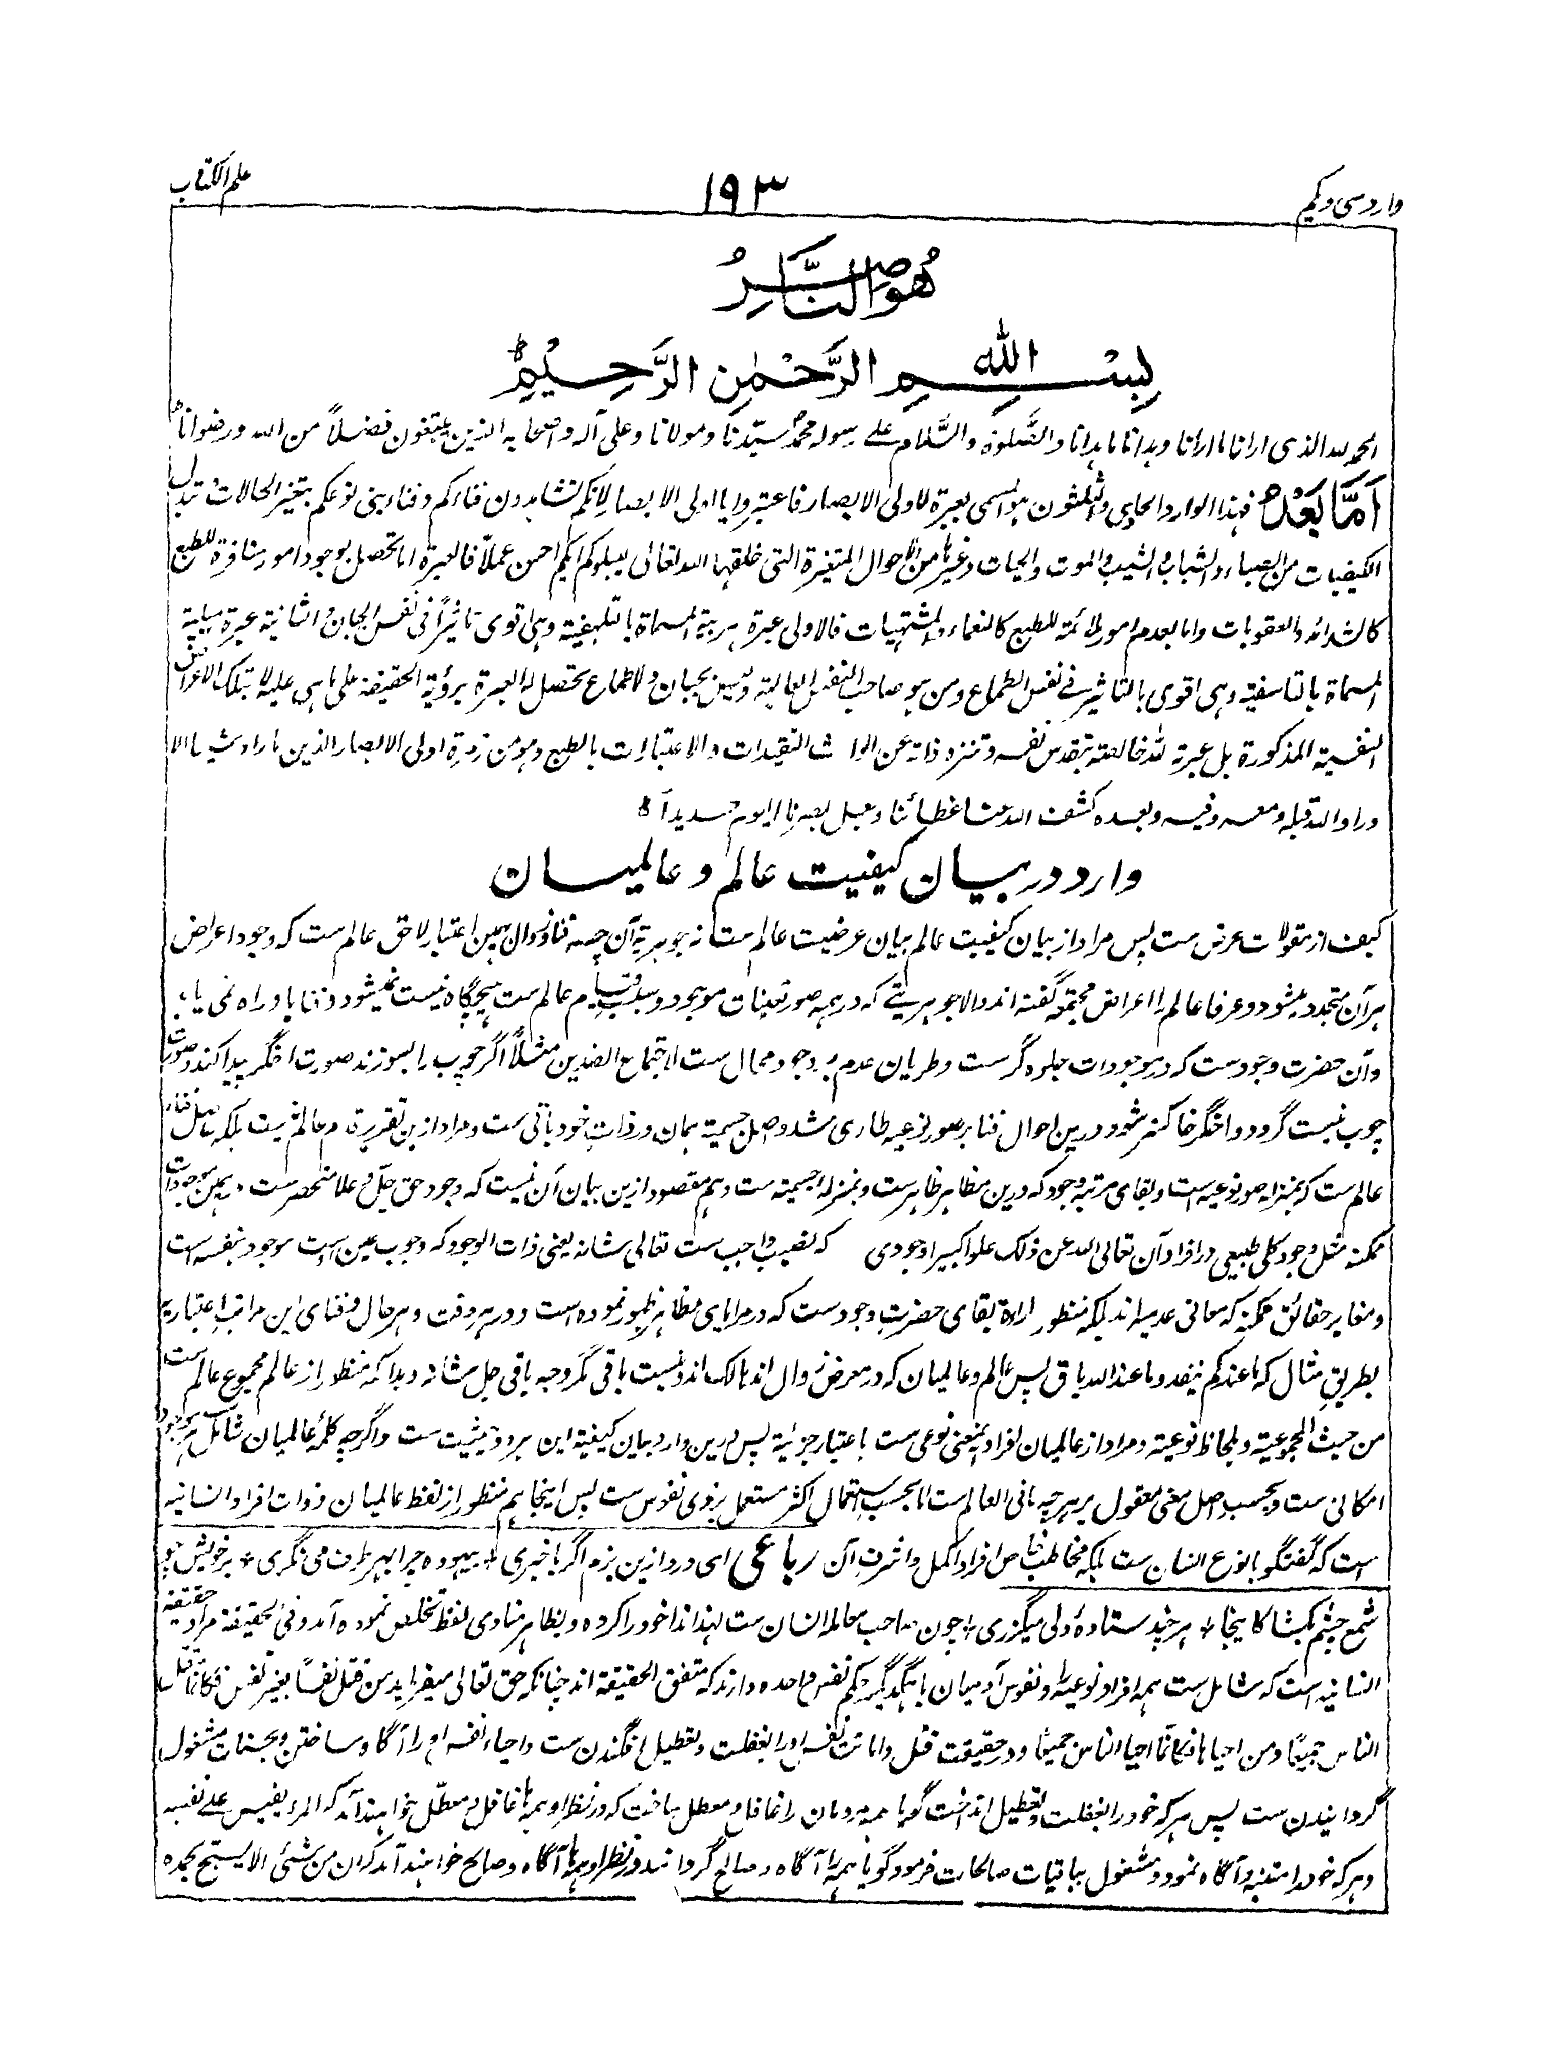 علم الکتاب
۱۹۳
وارد سی و یکم
هُوَ النَّاصِرُ
بِسْمِ اللهِ الرَّحْمٰنِ الرَّحِيْمِ
الحمد لله الذی ارانا ما ارانا و ہدانا ما ہدانا والصَّلوة والسَّلام علے رسوله محمد سیّدنا و مولانا و علی آله و اصحابه الذین یبتغون فضلاً من الله و رضوانا
اَمَّا بَعْدُ فہذا الوارد الحادی والثلثون ہو المسمی بعبرة لاولی الابصار فاعتبروا یا اولی الابصار لانکم تشاہدون فناءکم و فناء بنی نوعکم بتغیر الحالات و تبدل
الکیفیات من الصباء والشباب والشیب والموت والحیات و غیرہا من الاحوال المتغیرة التی خلقہا الله تعالی لیبلوکم ایکم احسن عملاً فالعبرة اما تحصل بوجود امور منافرة للطبع
کالشدائد والعقوبات واما بعدم امور ملائمة للطبع کالنعماء والمشتہیات فالاولی عبرة ہربیة المسماة بالتلہفیة وہی اقوی تاثیراً فی نفس الجبان والثانیة عبرة سلبیة
المسماة بالتاسفیة وہی اقوی بالتاثیر فے نفس الطماع ومن ہو صاحب النفس العالیة ولیس بجبان ولا طماع تحصل له العبرة برؤیة الحقیقة علی ما ہی علیه لا بتلک الاغراض
النفسیة المذکورة بل عبرة لله خالصة بتقدس نفسه و تنزه ذاته عن التقیدات والاعتبارات بالطبع وہو من زمرة اولی الابصار الذین ما راوا شیئا الا
وراوا الله قبله و معه و فیه و بعده کشف الله عنا غطائنا وجعل بصرنا الیوم حدیداً
وارد در بیان کیفیت عالم و عالمیان
کیف از مقولات عرض ست پس مراد از بیان کیفیت عالم بیان عرضیت عالم ست نه جوہریت آن چه فنا و زوال بہمین اعتبار لاحق عالم ست که وجود اعراض
ہر آن متجدد میشود و عرفا عالم را اعراض مجتمعه گفته اند والا جوہریتے که در ہمه صور تعینات موجود و سبب قیام عالم ست ہیچگاه نیست نمیشود و فنا باو راه نمی یابد
وآن حضرت وجود ست که در موجودات جلوه گر ست و طریان عدم بر وجود محال ست لاجتماع الضدین مثلاً اگر چوب را بسوزند صورت اخگر پیدا کند و صورت
چوب نیست گردد و اخگر خاکستر شود درین احوال فنا بر صور نوعیه طاری شد و اصل جسمیة ہمان در ذات خود باقی ست و مراد ازین تقریر قدم عالم نیست بلکه مثل فناء
عالم ست که بمنزله صور نوعیه است و بقای مرتبه وجود که درین مظاہر ظاہر ست و بمنزله جسمیة ست و ہم مقصود ازین بیان آن نیست که وجود حق جل و علا منحصر ست در ہمین موجودات
ممکنه مثل وجود کلی طبیعی در افراد آن تعالی الله عن ذلک علوا کبیرا وجودی که نصیب واجب ست تعالی شانه یعنی ذات الوجود که وجوب عین است موجود بنفسه است
و مغایر حقائق ممکنه که معانی عدمیه اند بلکه منظور اراده بقای حضرت وجود ست که در مرایای مظاہر ظہور نموده است و در ہر وقت و ہر حال و فنای این مراتب اعتباریه
بطریق مثال که ما عندکم ینفد وما عند الله باق پس عالم و عالمیان که در معرض زوال اند ہالک اند و نیست باقی مگر وجه باقی جل شانه و بدانکه منظور از عالم مجموع عالم ست
من حیث المجموعیة و بلحاظ نوعیة و مراد از عالمیان افراد بمعنی نوعی ست باعتبار جزئیة پس درین وارد بیان کیفیة این ہر دو حیثیت ست و اگرچه کلمهٔ عالمیان شامل ہر موجود
امکانی ست و بحسب اصل معنی معقول بر ہر چه فی العالم ست اما بحسب استعمال اکثر مستعمل بر ذوی نفوس ست پس اینجا ہم منظور از لفظ عالمیان ذوات افراد انسانیه
است که گفتگو با نوع انسان ست بلکه مخاطب خاص افراد اکمل و اشرف آن رباعی ای درد ازین بزم اگر باخبری + بیہوده چرا بہر طرف می نگری + بر خویش چو
شمع چشم بکشا کاینجا + ہر چند ستادهٔ ولی میگزری + چون صاحب معامله انسان ست لہذا ندا خود را کرده و بظاہر منادی لفظ تخلص نموده آمد و فی الحقیقة مراد حقیقة
انسانیه است که شامل ست ہمه افراد نوعیه را و نفوس آدمیان با یکدیگر حکم نفس واحده دارند که متفق الحقیقة اند چنانکه حق تعالی میفرماید من قتل نفساً بغیر نفس فکانما قتل
الناس جمیعًا ومن احیاہا فکانّما احیا الناس جمیعًا و در حقیقت قتل و اماتت نفس او را بغفلت و تعطیل افگندن ست و احیاء نفسه او را آگاه ساختن و بحسنات مشغول
گردانیدن ست پس ہر که خود را بغفلت و تعطیل انداخت گویا ہمه مردمان را غافل و معطل ساخت که در نظر او ہمہ ہا غافل و معطّل خواہند آمد که المرء یقیس علے نفسه
و ہر که خود را متنبه و آگاه نمود و مشغول بباقیات صالحات فرمود گویا ہمه را آگاه و صالح گردانید و در نظر او ہمہ ہا آگاه و صالح خواہند آمد که ان من شئی الا یسبح بحمده